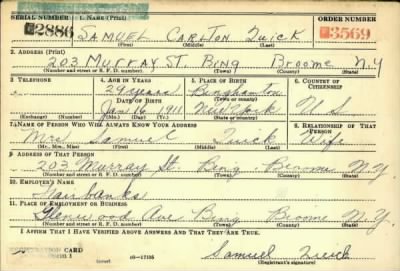 SERIAL NUMBER 1. NAME (Print) ORDER NUMBER
2886 SAMUEL CARLTON QUICK 3569
(First) (Middle) (Last)
2. ADDRESS (Print)
203 MURRAY ST. BING Broome N.Y
(Number and street or R. F. D. number) (Town) (County) (State)
3. TELEPHONE 4. AGE IN YEARS 5. PLACE OF BIRTH 6. COUNTRY OF CITIZENSHIP
29 years Binghamton
DATE OF BIRTH (Town or county)
Jan 16 1911 New York U S
(Exchange) (Number) (Mo.) (Day) (Yr.) (State or country)
7. NAME OF PERSON WHO WILL ALWAYS KNOW YOUR ADDRESS 8. RELATIONSHIP OF THAT PERSON
Mrs. Samuel Quick Wife
(Mr., Mrs., Miss) (First) (Middle) (Last)
9. ADDRESS OF THAT PERSON
203 Murray St. Bing Broome N.Y
(Number and street or R. F. D. number) (Town) (County) (State)
10. EMPLOYER'S NAME
Fairbanks
11. PLACE OF EMPLOYMENT OR BUSINESS
Glenwood Ave Bing Broome N.Y.
(Number and street or R. F. D. number) (Town) (County) (State)
I AFFIRM THAT I HAVE VERIFIED ABOVE ANSWERS AND THAT THEY ARE TRUE.
REGISTRATION CARD
16—17105 Samuel Quick
(Registrant's signature)